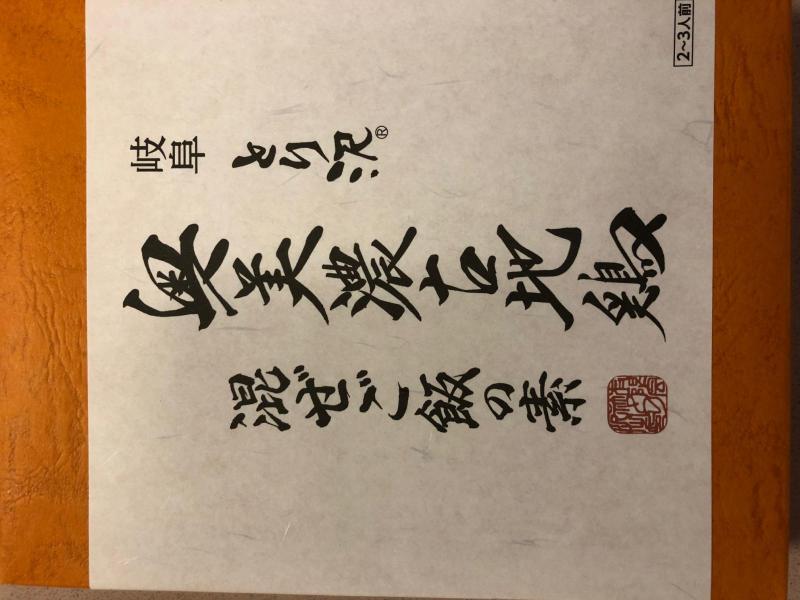 2〜3人前
岐阜
とり沢®
奥美濃古地鶏
混ぜご飯の素